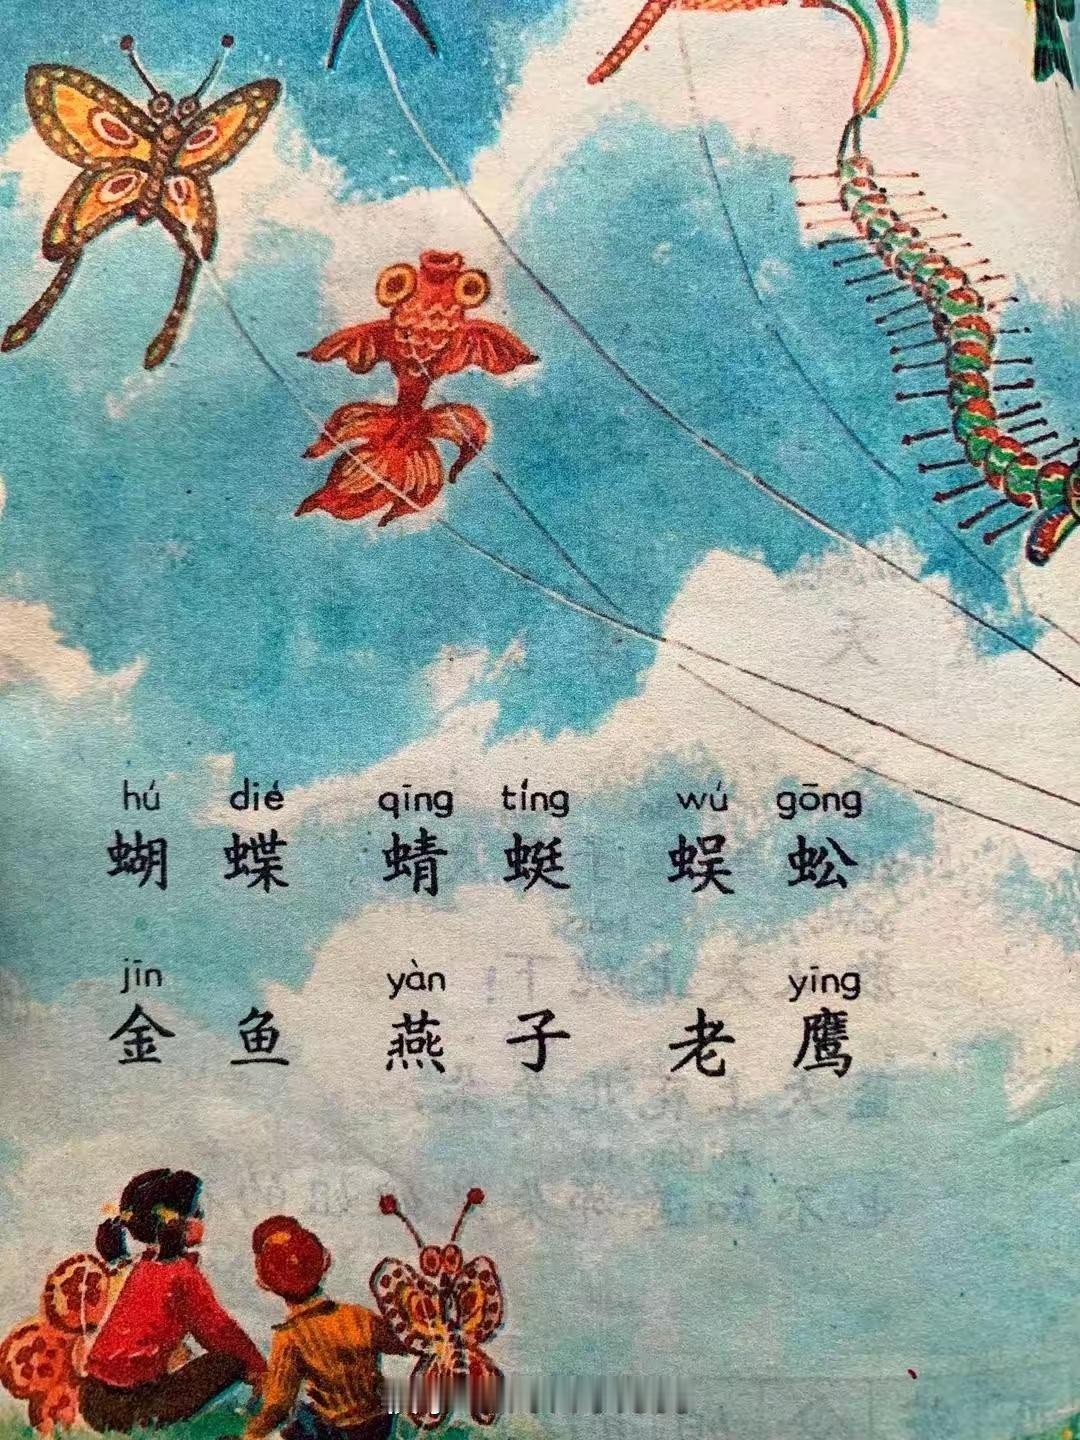 hú dié qīng tíng wú gōng
蝴 蝶 蜻 蜓 蜈 蚣
jīn yàn yīng
金 鱼 燕 子 老 鹰